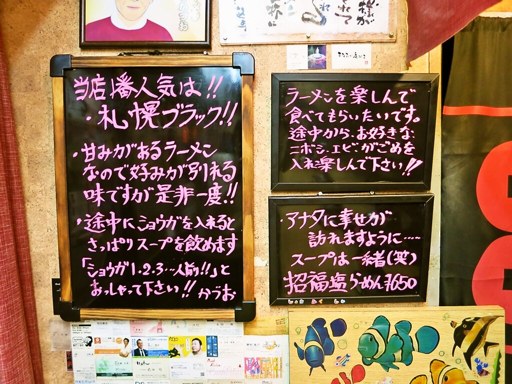 当店1番人気は!!
・札幌ブラック!!
・甘みがあるラーメン
なので好みが別れる
味ですが是非一度!!
・途中にショウガを入れると
さっぱりスープを飲めます
「ショウガ1・2・3…人前!!」と
おっしゃって下さい!! かつお
ラーメンを楽しんで
食べてもらいたいです。
途中から、お好きな
ニボシ、エビ、がごめを
入れ楽しんで下さい!!
アナタに幸せが
訪れますように……
スープは一緒(笑)
招福塩らぁめん ¥650